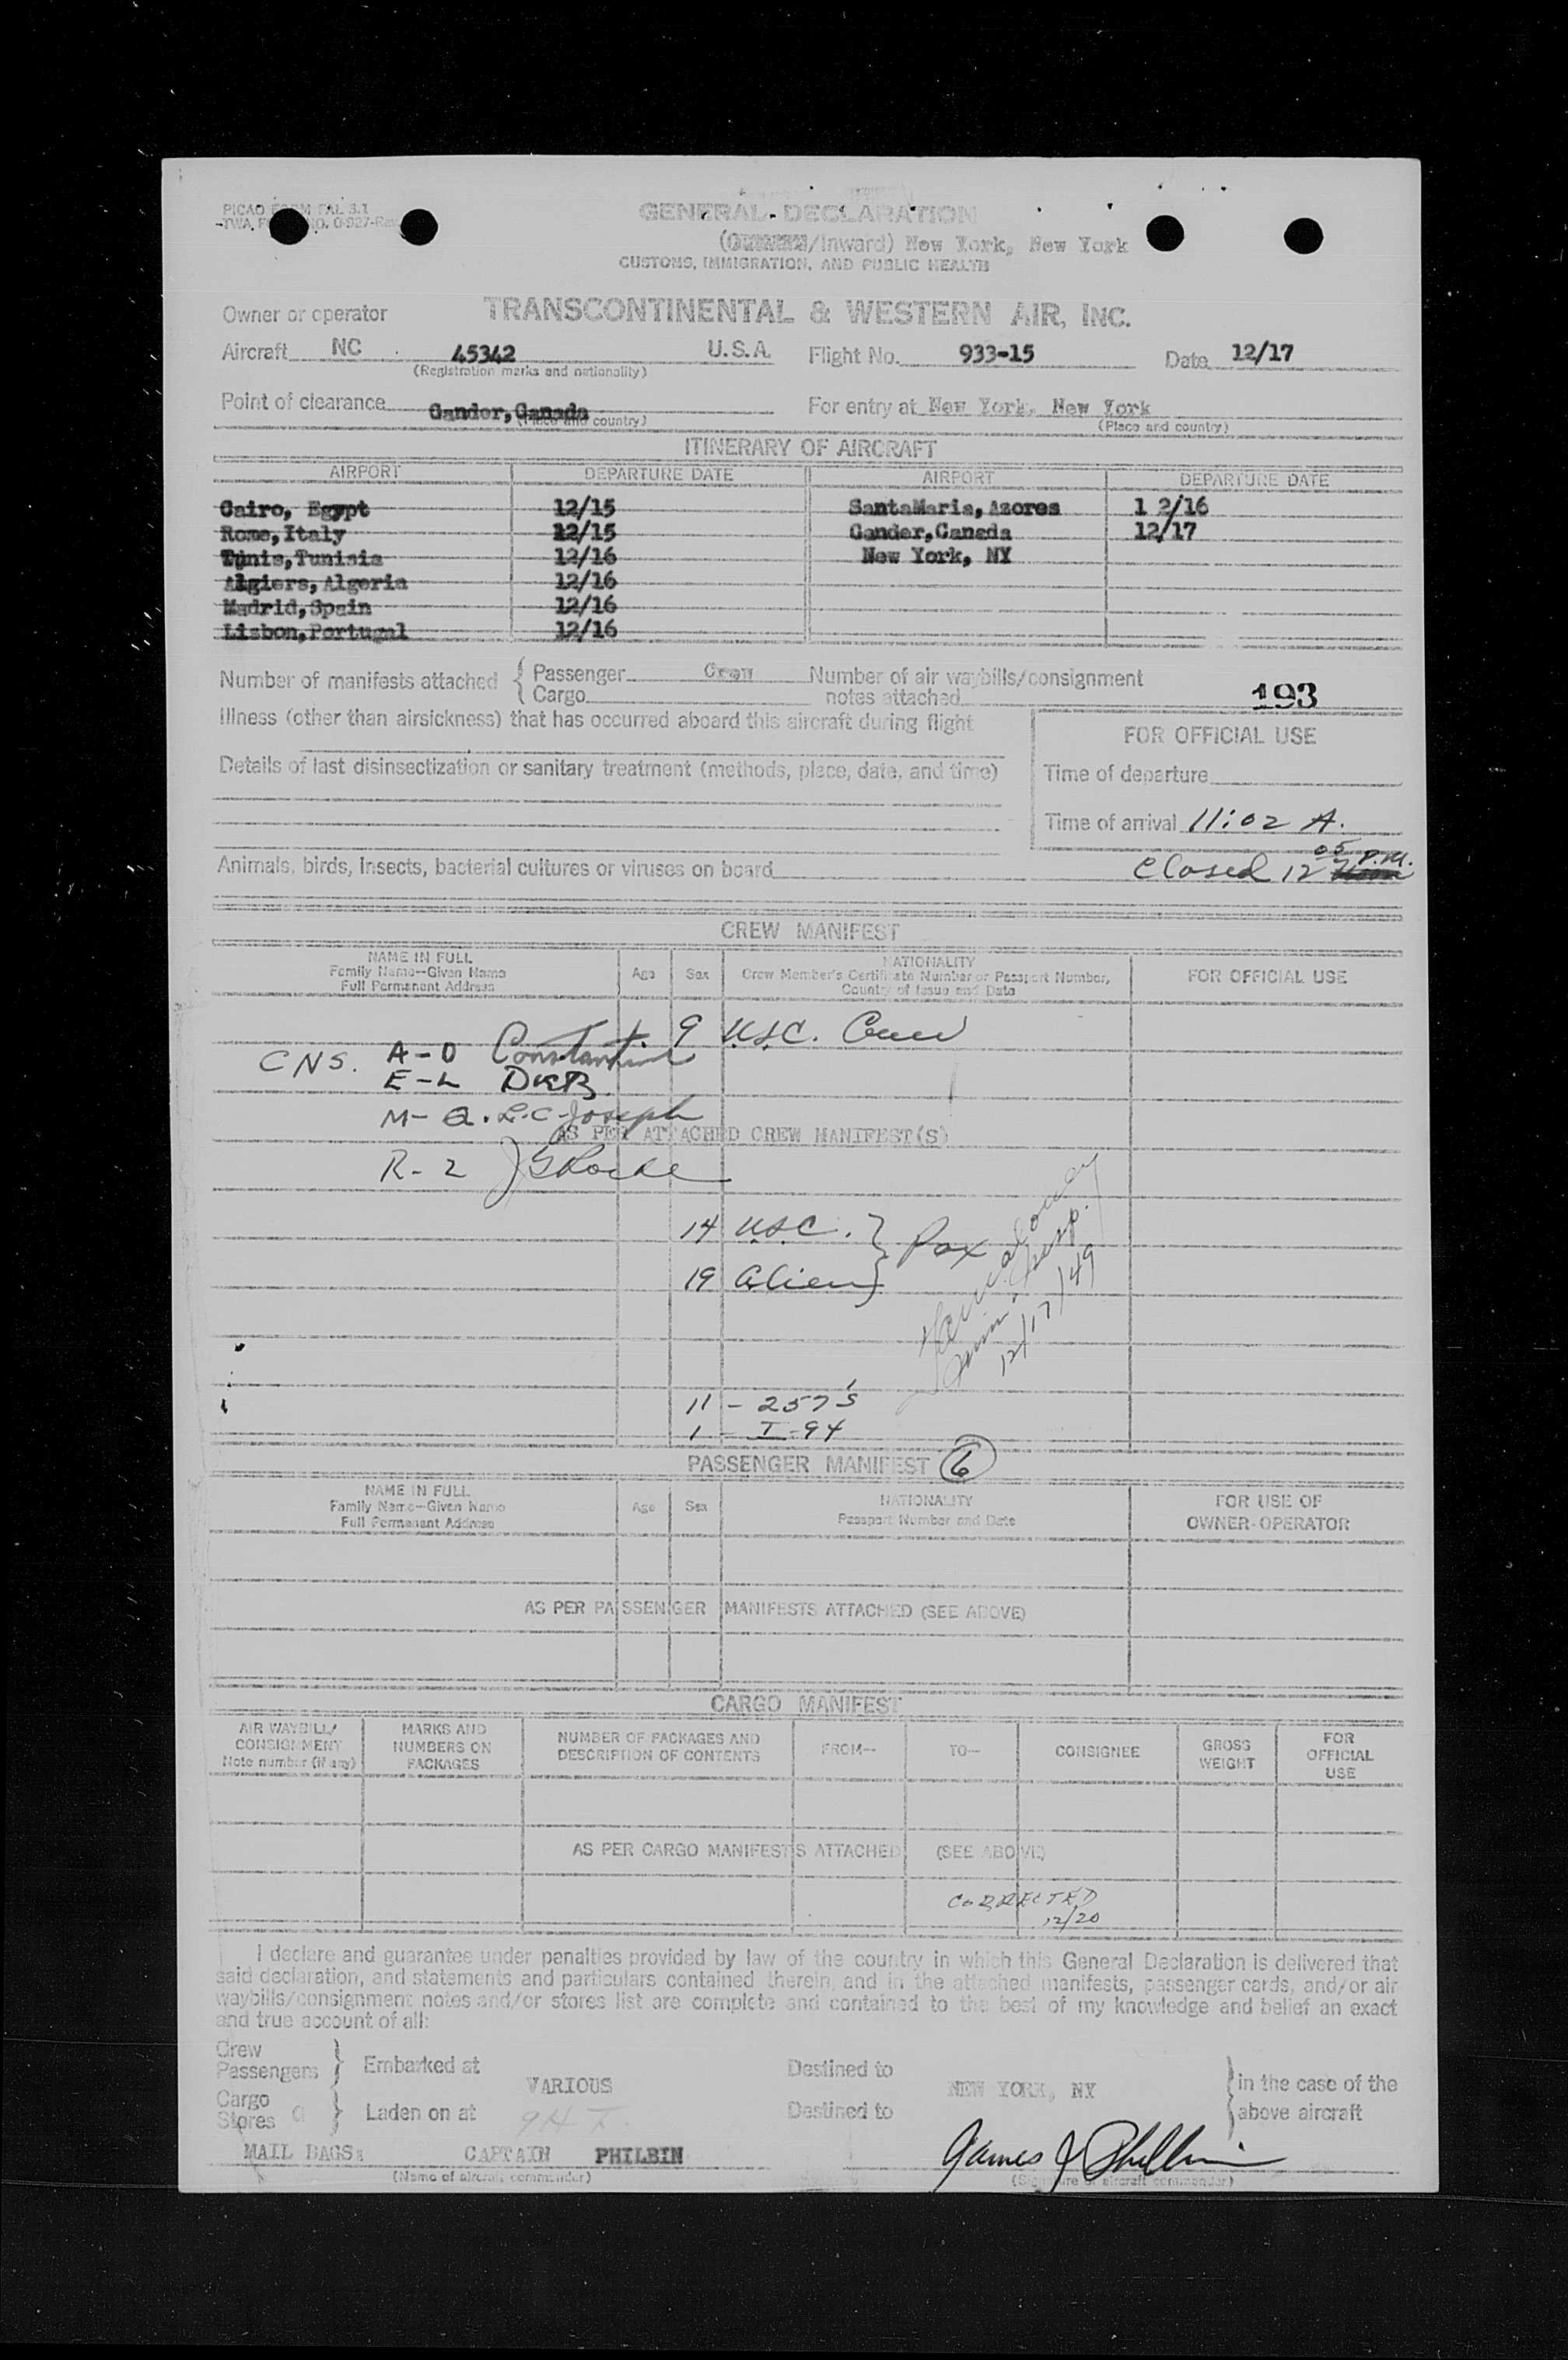 PICAO FORM FAL 3.1
GENERAL DECLARATION
/Inward) New York, New York
CUSTOMS, IMMIGRATION, AND PUBLIC HEALTH
Owner or operator TRANSCONTINENTAL & WESTERN AIR, INC.
Aircraft NC 45342 U.S.A. Flight No. 933-15 Date 12/17
(Registration marks and nationality)
Point of clearance Gander, Canada For entry at New York, New York
(Place and country) (Place and country)
ITINERARY OF AIRCRAFT
AIRPORT DEPARTURE DATE AIRPORT DEPARTURE DATE
Cairo, Egypt 12/15 SantaMaria, Azores 1 2/16
Rome, Italy 12/15 Gander, Canada 12/17
Tunis, Tunisia 12/16 New York, NY
Algiers, Algeria 12/16
Madrid, Spain 12/16
Lisbon, Portugal 12/16
Number of manifests attached { Passenger Crew Number of air waybills/consignment
Cargo notes attached 193
Illness (other than airsickness) that has occurred aboard this aircraft during flight
FOR OFFICIAL USE
Details of last disinsectization or sanitary treatment (methods, place, date, and time)
Time of departure
Time of arrival 11:02 A.
Animals, birds, insects, bacterial cultures or viruses on board
Closed 12 05 P.M.
CREW MANIFEST
NAME IN FULL
Family Name--Given Name
Full Permanent Address
Age Sex
NATIONALITY
Crew Member's Certificate Number or Passport Number,
Country of Issue and Date
FOR OFFICIAL USE
9 U.S.C. Crew
CNS. A-D Constantine
E-L DKB
M-Q. L.C. Joseph
AS PER ATTACHED CREW MANIFEST(S)
R-Z
14 U.S.C. } Pax
19 Alien }
12/17/49
11 - 257's
1 - I-94
PASSENGER MANIFEST 6
NAME IN FULL
Family Name--Given Name
Full Permanent Address
Age Sex
NATIONALITY
Passport Number and Date
FOR USE OF
OWNER-OPERATOR
AS PER PASSENGER MANIFESTS ATTACHED (SEE ABOVE)
CARGO MANIFEST
AIR WAYBILL/
CONSIGNMENT
Note number (if any)
MARKS AND
NUMBERS ON
PACKAGES
NUMBER OF PACKAGES AND
DESCRIPTION OF CONTENTS
FROM--
TO--
CONSIGNEE
GROSS
WEIGHT
FOR
OFFICIAL
USE
AS PER CARGO MANIFESTS ATTACHED (SEE ABOVE)
CORRECTED
12/20
I declare and guarantee under penalties provided by law of the country in which this General Declaration is delivered that
said declaration, and statements and particulars contained therein, and in the attached manifests, passenger cards, and/or air
waybills/consignment notes and/or stores list are complete and contained to the best of my knowledge and belief an exact
and true account of all:
Crew
Passengers } Embarked at VARIOUS Destined to NEW YORK, NY } in the case of the
Cargo
Stores } Laden on at Destined to } above aircraft
MAIL BAGS: CAPTAIN PHILBIN James J Philbin
(Name of aircraft commander) (Signature of aircraft commander)